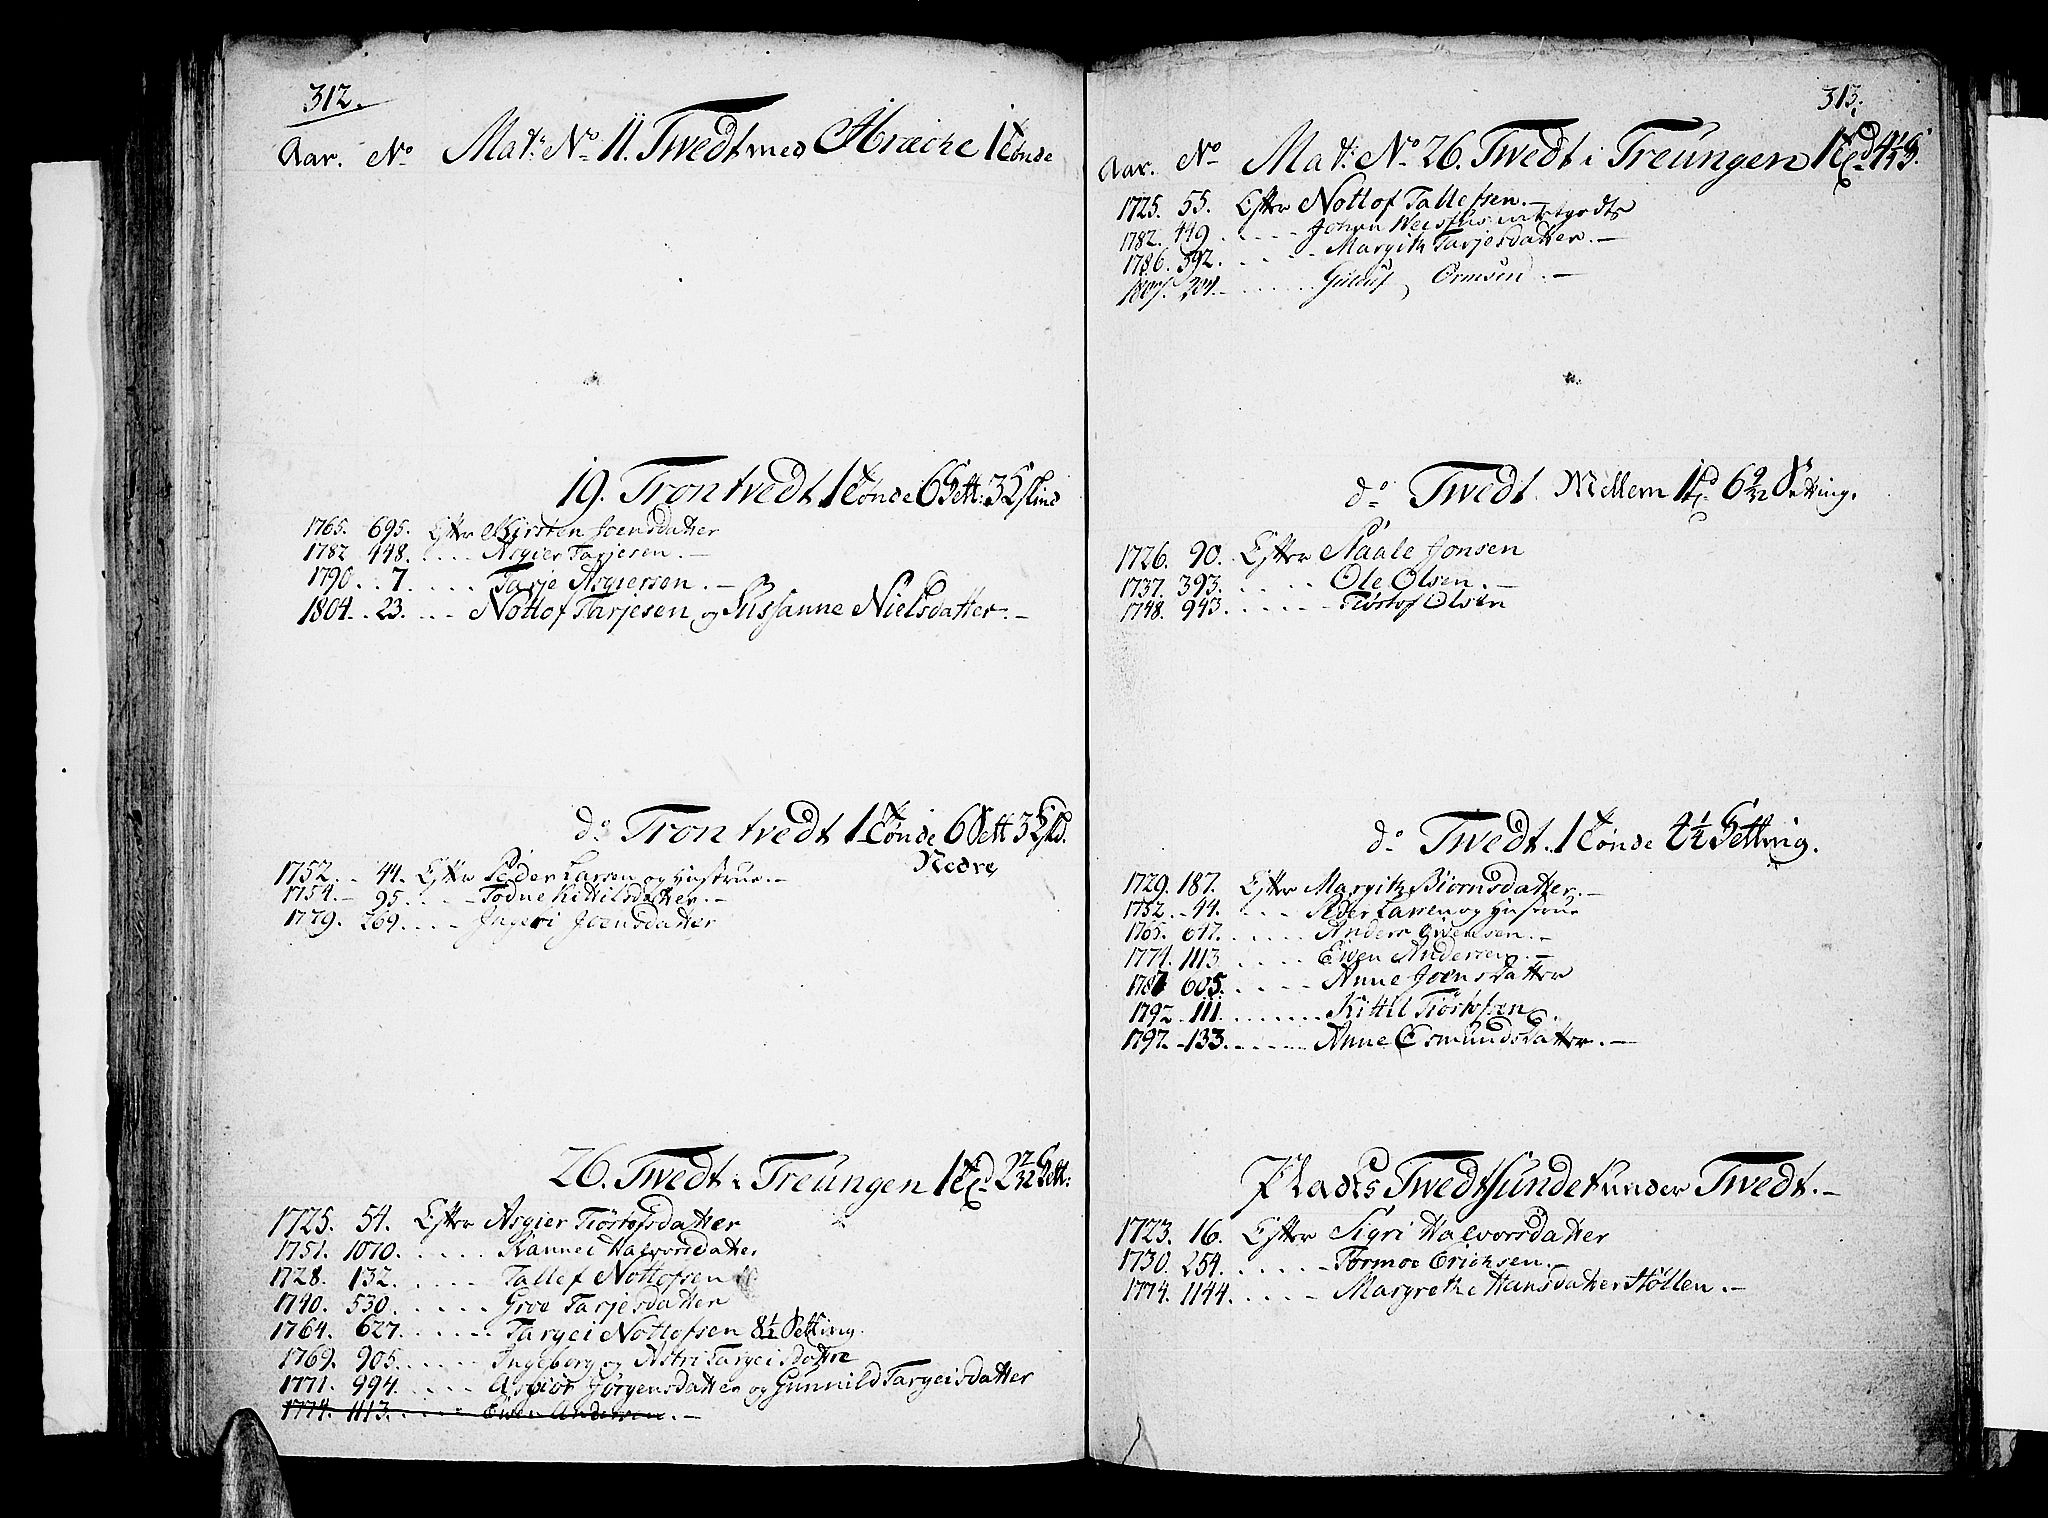 312.
Aar. No Mat: No 11. Twedt med Abræche 1 Tønde
19. Trontvedt 1 Tønde 6 Sett: 3
1765. 695. Efter Kirsten Joensdatter
1782 448. .... Asgier Tarjesen. —
1790. . 7. .... Tarje Asgiersen. —
1804. . 23. ... Nottof Tarjesen og Susanne Nielsdatter. —
do Trontvedt 1 Tønde 6 Sett 3
Nedre
1752. . 44. Efter Peder Larsen og Hustrue. —
1754. — 95. .... Todne Kittilsdatter. —
1779. 269. .... Ingeri Joensdatter
26. Twedt i Treungen 1 Td. 2 Sett:
1725. 54. Efter Asgier Tiöstofsdatter
1751. 1070. ..... Rannei Halvorsdatter
1728. 132. ..... Tallef Nottofsen
1740. 530. ..... Groe Tarjesdatter
1764. 627. ...... Targei Nottofsen 8½ Setting.
1769. 905. ..... Ingeborg og Astri Targeisdattre
1771. 994. ..... Jørgensdatter og Gunnild Targeisdatter
1774. 1113. ..... Ewen Andersen. —
313.
Aar. No Mat: No 26. Twedt i Treungen 1 Td 4½ S.
1725. 55. Efter Nottof Tallefsen. —
1782. 449. ..... Johan
1786. 392. ..... Margith Tarjesdatter. —
1807. 304. ...... Ormsen. —
do Twedt. Mellem 1 Td 6 Setting.
1726. 90. Efter Staale Jonsen
1737. 393. ..... Ole Olsen. —
1748. 943. ...... Tiöstof Olsen
do Twedt. 1 Tønde 4½ Setting.
1729. 187. Efter Margith Biörnsdatter. —
1752. . 44. .... Peder Larsen og Hustrue
1765. 647. ...... Anders Ewensen. —
1774. 1113 ..... Ewen Andersen. —
1787 605. ..... Anne Joensdatter
1792. 111. ....... Kittil Tiöstofsen.
1797. . 133. ...... Anne Osmundsdatter. —
Pladts Twedtsundet under Twedt. —
1723. 16. Efter Sigri Halvorsdatter
1730. 254. ...... Tormoe Erichsen. —
1774. 1144. ..... Margrethe Hansdatter Stöllen. —